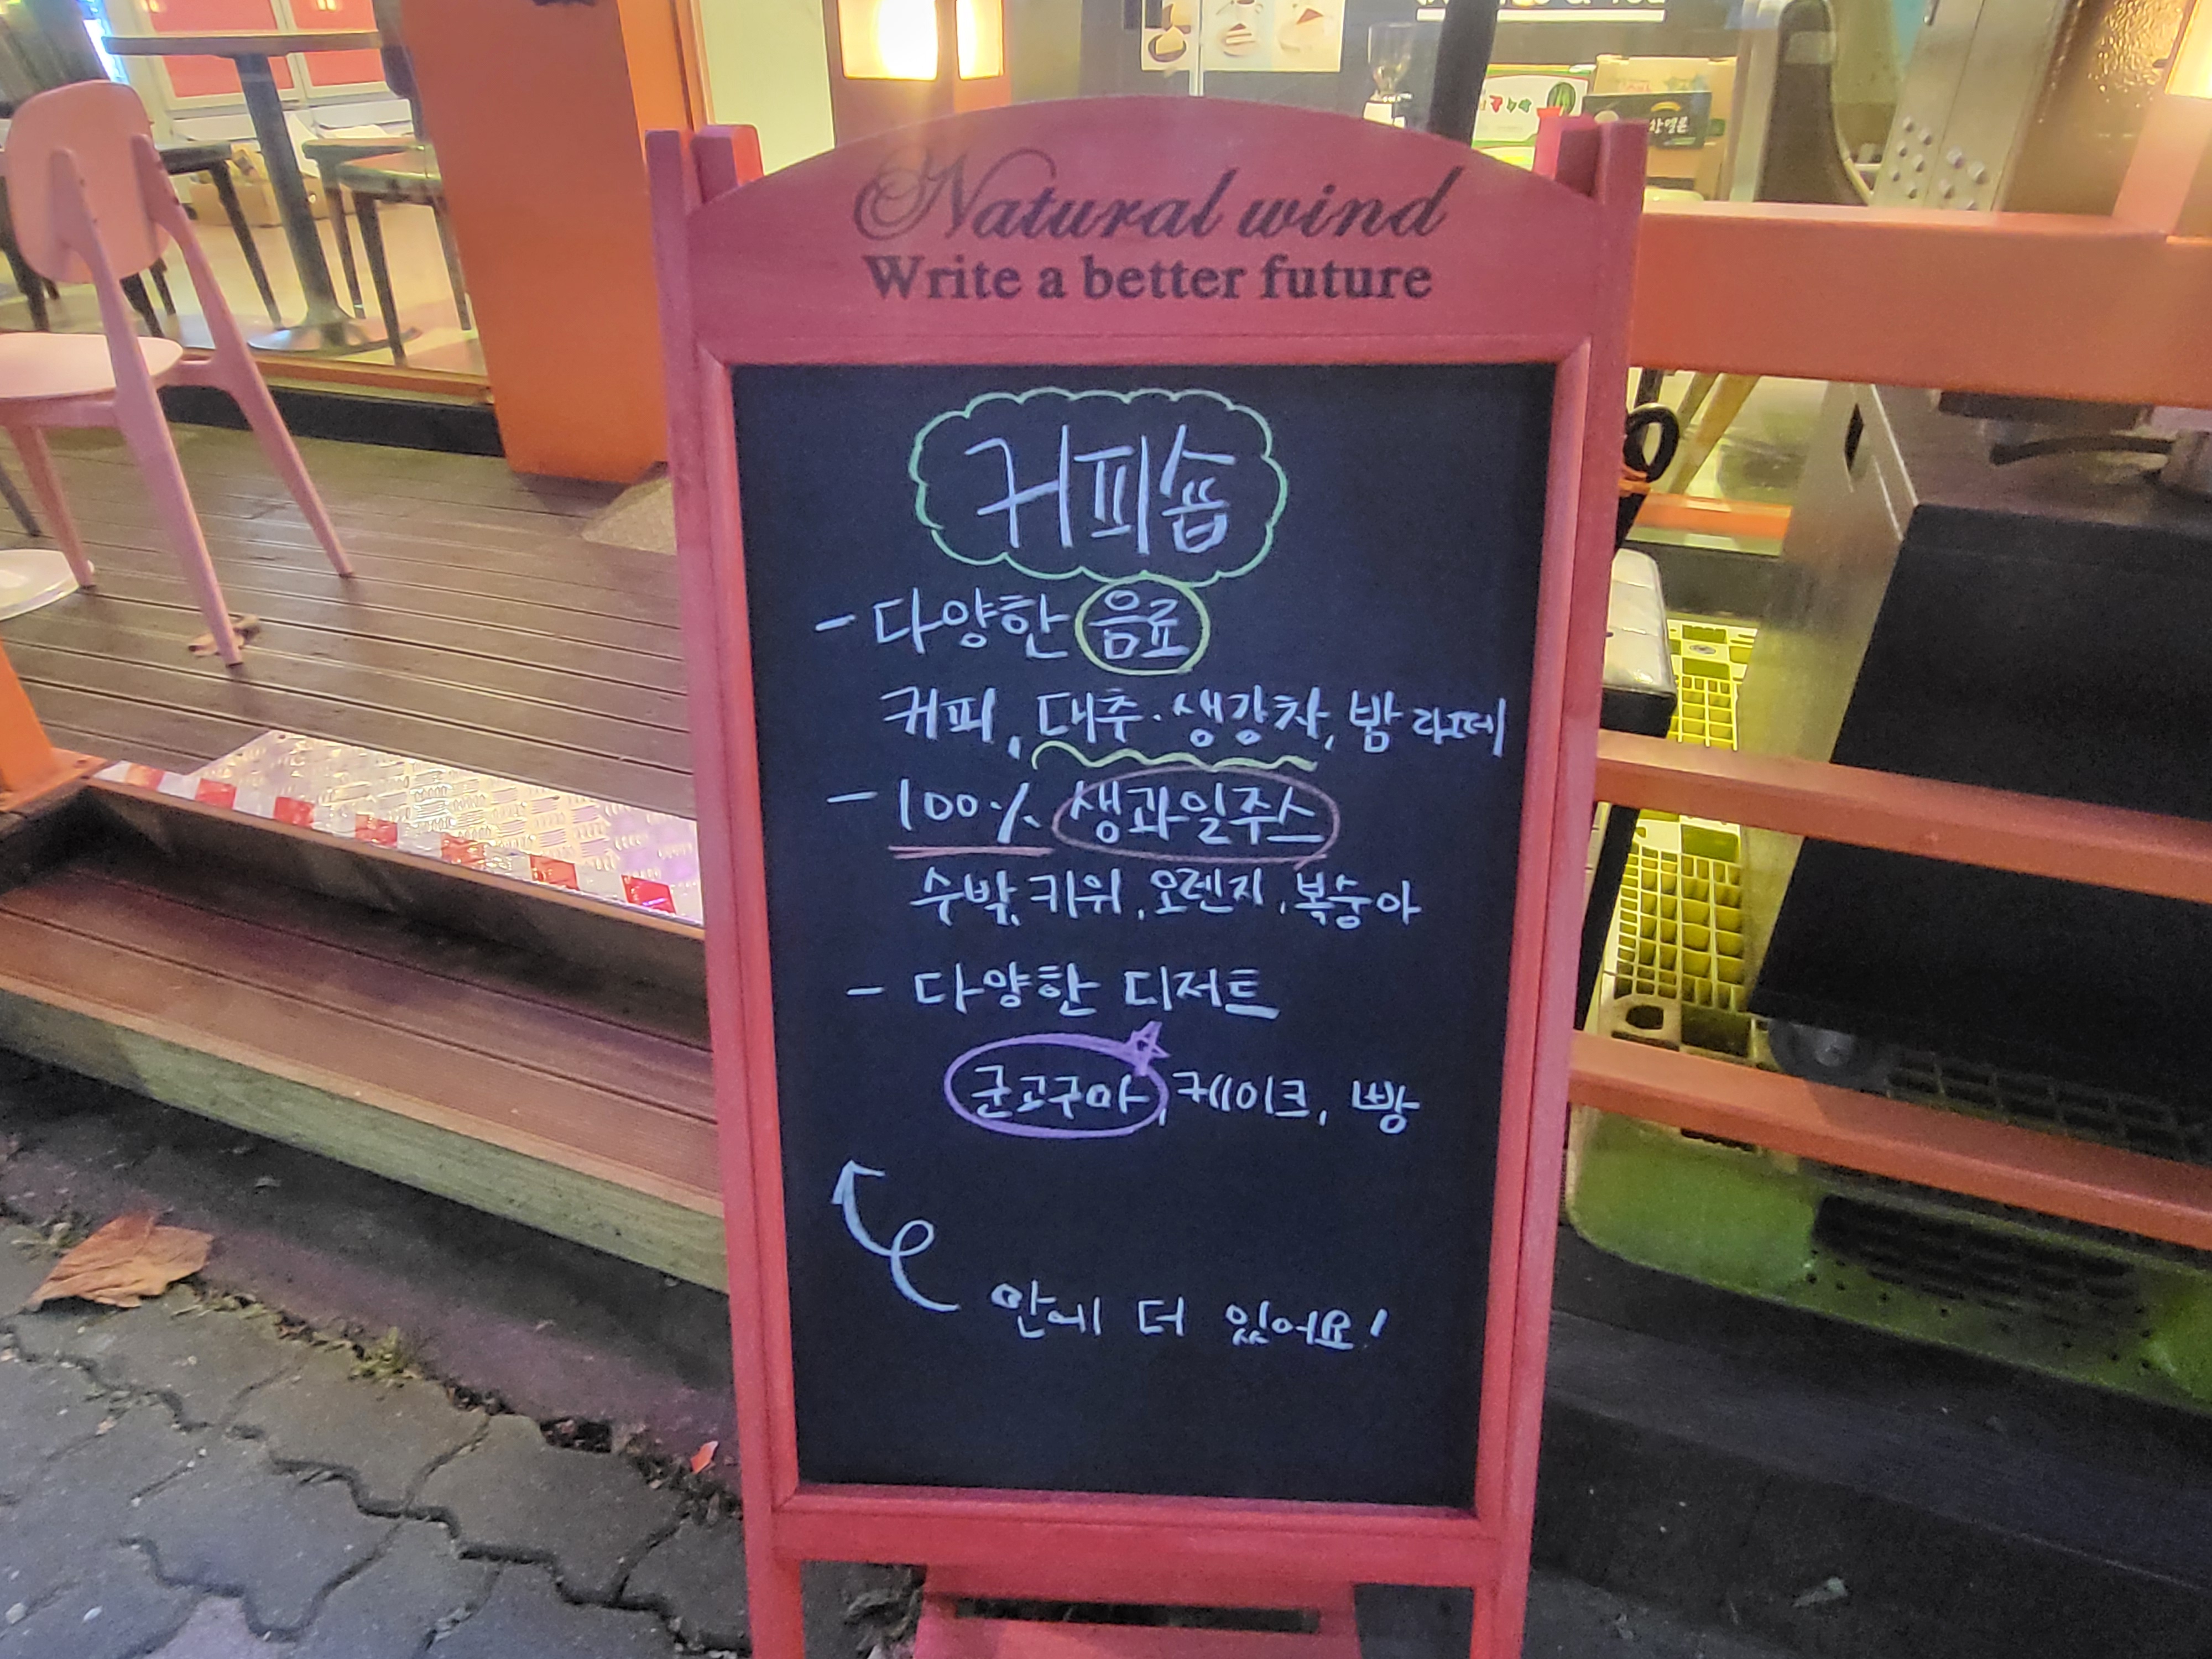 Natural wind
Write a better future
커피숍
- 다양한 음료
커피, 대추·생강차, 밤라떼
- 100% 생과일주스
수박, 키위, 오렌지, 복숭아
- 다양한 디저트
군고구마, 케이크, 빵
안에 더 있어요!